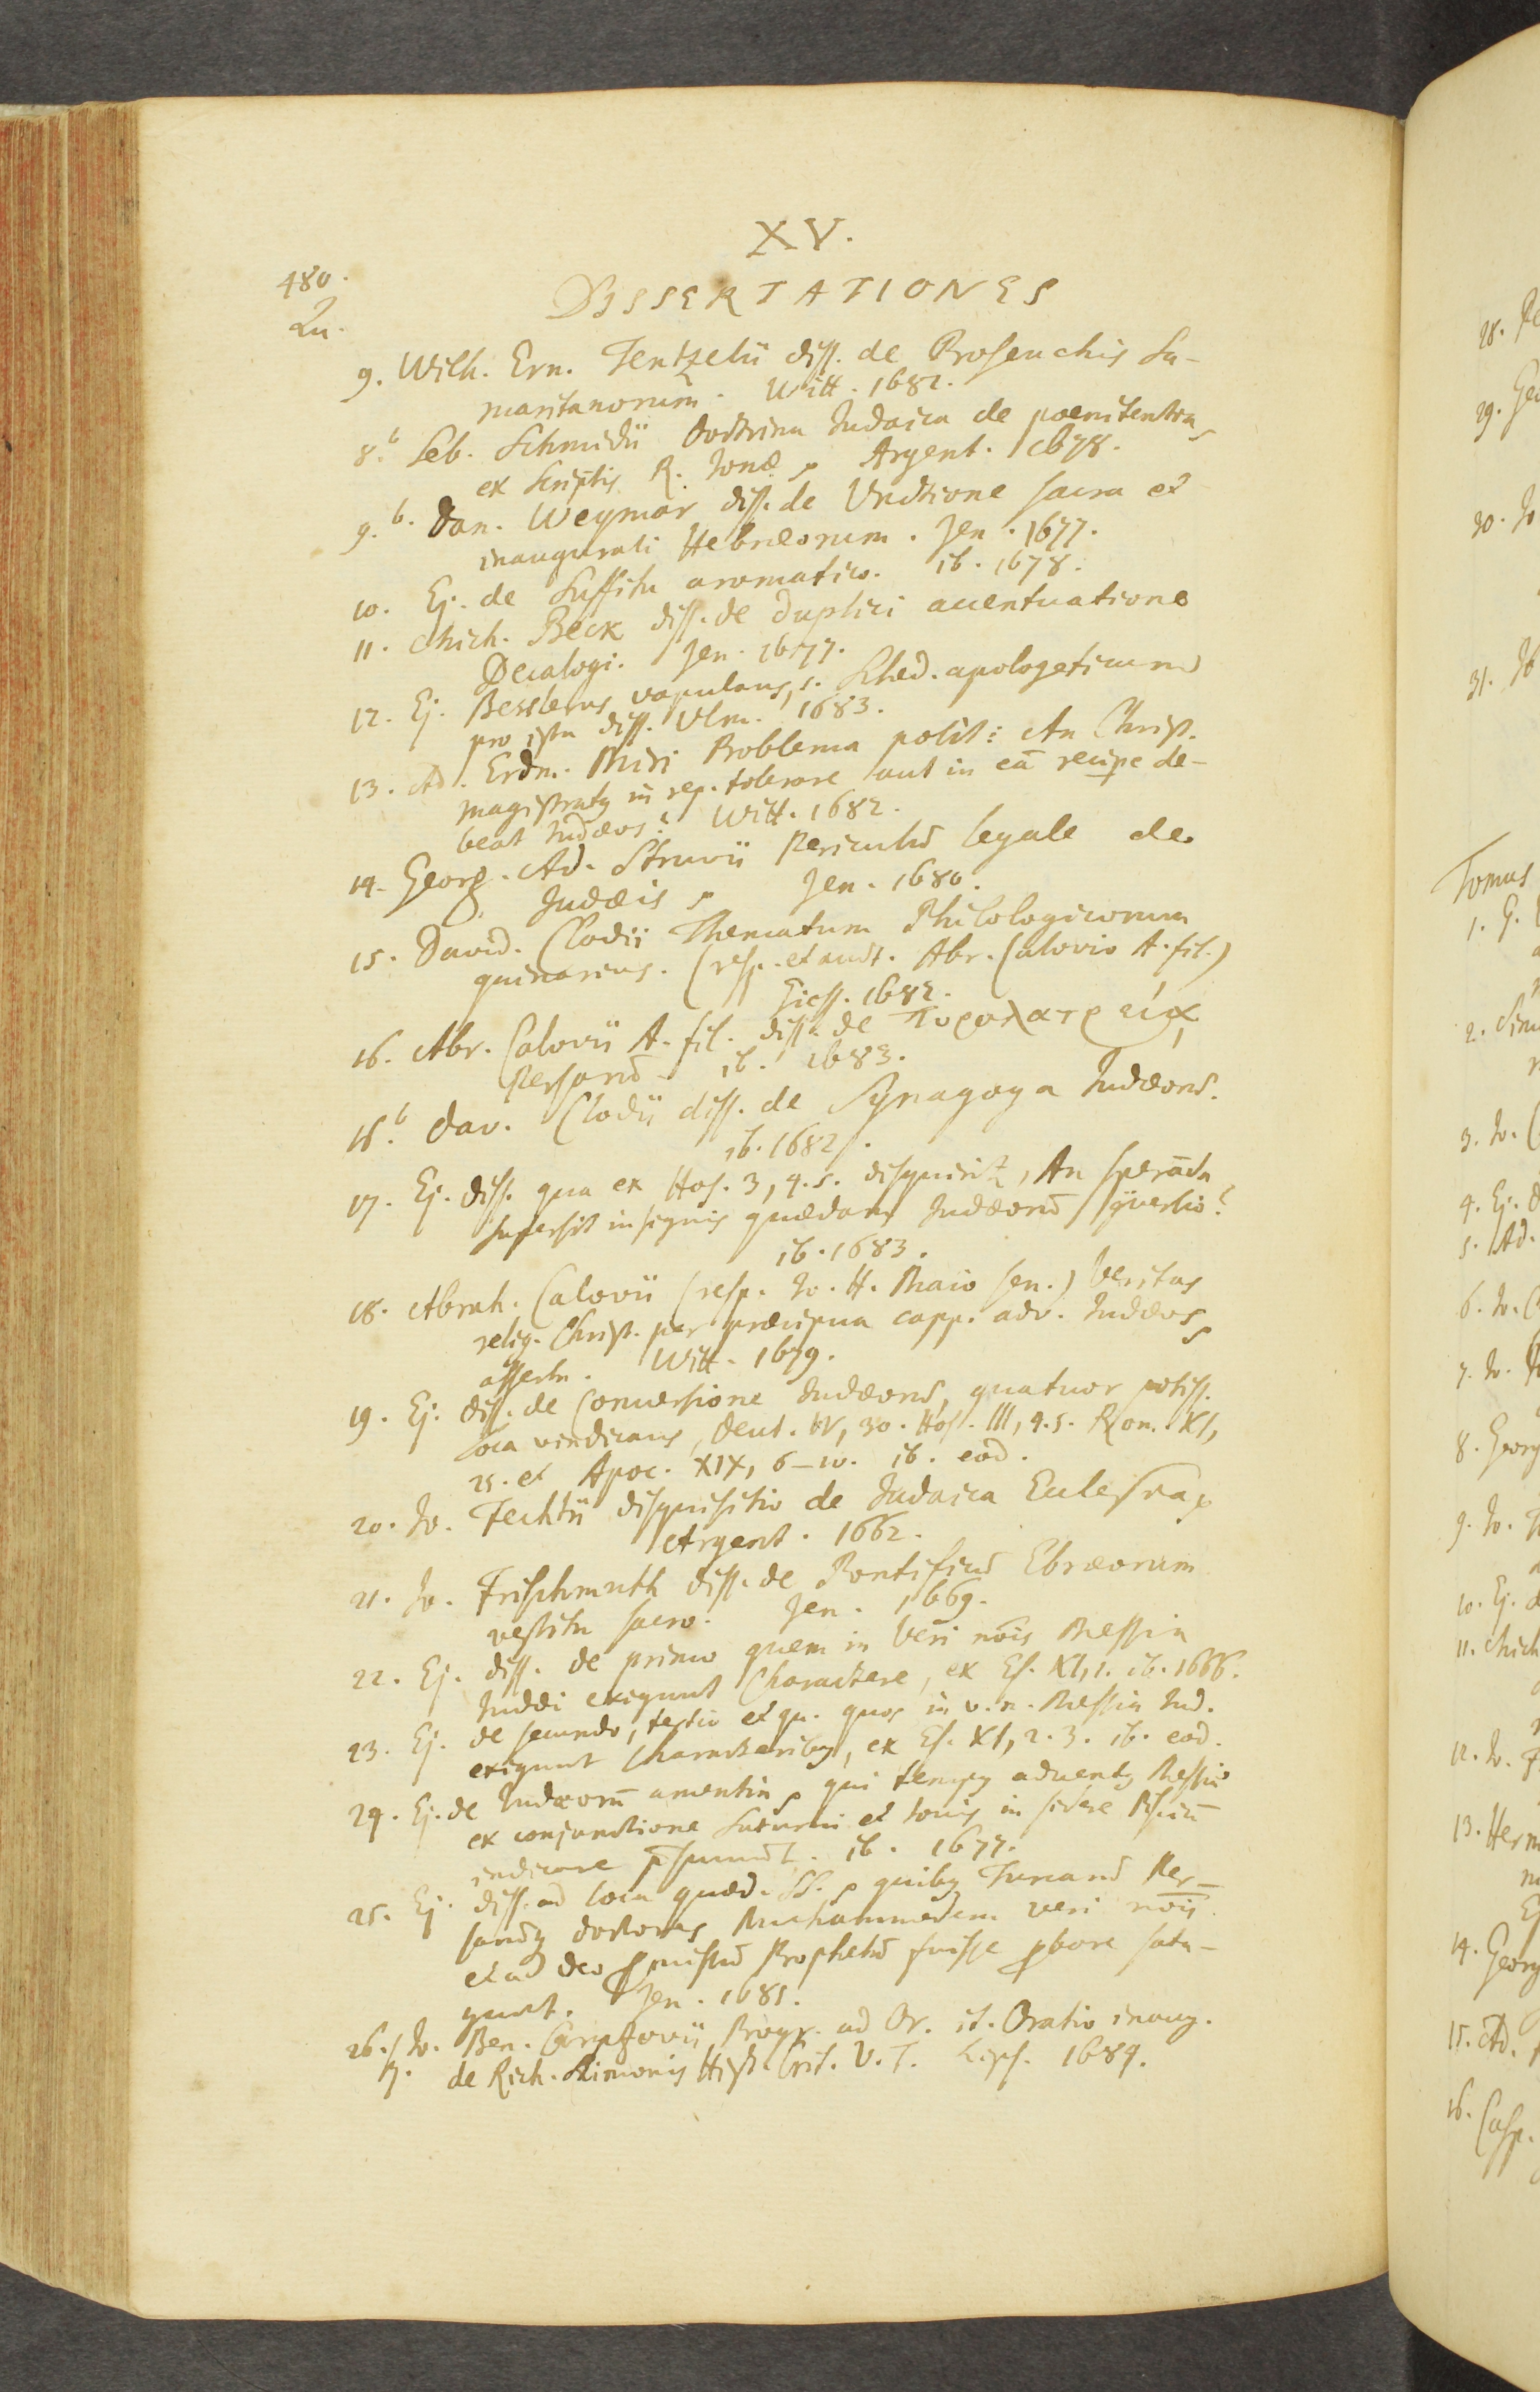 XV.
480.
Qu.
DISSERTATIONES
9. Wilh. Ern. Tentzelii diss. de Proseuchis Sa-
maritanorum̃. Witt. 1682.
8.b Seb. Schmidii Doctrina Judaica de poenitentia,
ex scriptis R. Jonæ, Argent. 1678.
9.b. Dan. Weymar diss. de Unctione sacra et
inaugurali Hebræorum. Jen. 1677.
10. Ej. de Suffitu aromatico. ib. 1678.
11. Mich. Beck diss. de duplici accentuatione
Decalogi. Jen. 1677.
12. Ej. Besslerus vapulans, s. Sched. apologeticum
pro ista diss. Ulm. 1683.
13. Ad. Erdm. Miri Problema polit: An Christ.
magistraty in rep. tolerare aut in eā recipe de-
beat Judæos? Witt. 1682.
14. Georg. Ad. Struvii Periculū legale de
Judæis, Jen. 1680.
15. David. Clodii Thematum Philologicorum
quinarius. (resp. et auct. Abr. Calovio A. fil.)
Giess. 1682.
16. Abr. Calovii A. fil. diss. de Πυρολατρείᾳ
Persarū ib. 1683.
16.b Dav. Clodii diss. de Synagoga Judæorū.
ib. 1682.
17. Ej. diss. qua ex Hos. 3, 4.5. disquirit, An sperāda
supersit insignis quædam Judæorū 9versio?
ib. 1683.
18. Abrah. Calovii (resp. Jo. H. Maio sen.) Veritas
relig. Christ. per præcipua capp. adv. Judæos,
asserta. Witt. 1679.
19. Ej. diss. de Conversione Judæorū, quatuor potiss.
loca vindicans, Deut. IV, 30. Hos. III, 4.5. Rom. XI,
25. et Apoc. XIX, 6-10. ib. eod.
20. Jo. Fechtii disquisitio de Judaica Ecclesia,
Argent. 1662.
21. Jo. Frischmuth diss. de Pontificū Ebræorum
vestitu sacro. Jen. 1669.
22. Ej. diss. de primo quem in Veri nōis Messia
Judæi exigunt Charactere, ex Es. XI, 1. ib. 1666.
23. Ej. de secundo, tertio et qu. quos in v. n. Messia Jud.
exigunt Characteriby, ex Es. XI, 2. 3. ib. eod.
24. Ej. de Judæorū amentia, qui tempy adventy Messiæ
ex conjunctione Saturni et Jovis in sidere Pisciū
indicare p̄sumūt. ib. 1677.
25. Ej. diss. ad loca quæd. SS., quiby Turcarū Per-
sarūq doctores Muhammedem veri nōis
et a Deo pmissū Prophetā fuisse pbare sata-
gunt. Jen. 1681.
26. Jo. Ben. Carpzovii Progr. ad Or. it. Oratio inaug.
7. de Rich. Simonis Hist. Crit. V. T. Lips. 1684.